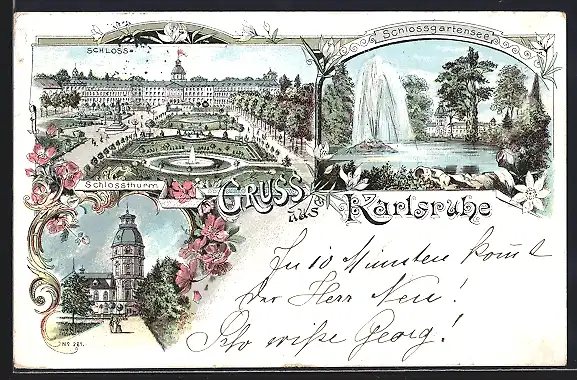 SCHLOSS
Schlossgartensee
Schlossthurm
GRUSS
aus Karlsruhe
In 10 Minuten kom̄t
der Herr Neu!
Georg!
No 281.